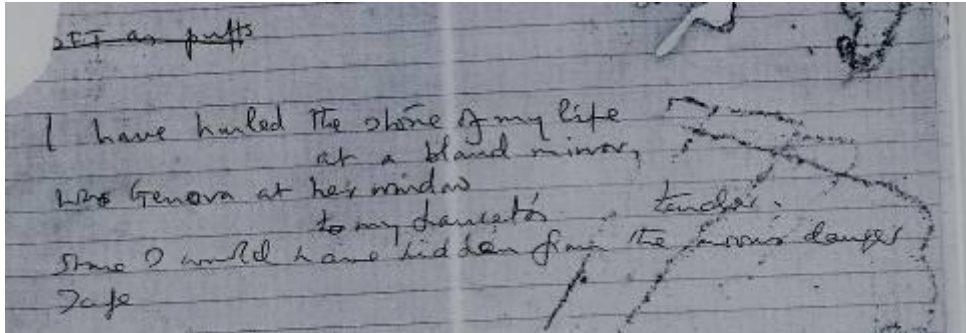 as puffs
I have hurled the stone of my life
at a bland mirror,
Geneva at her window
to my tender.
stone I would have hidden from the mirror's danger
Safe